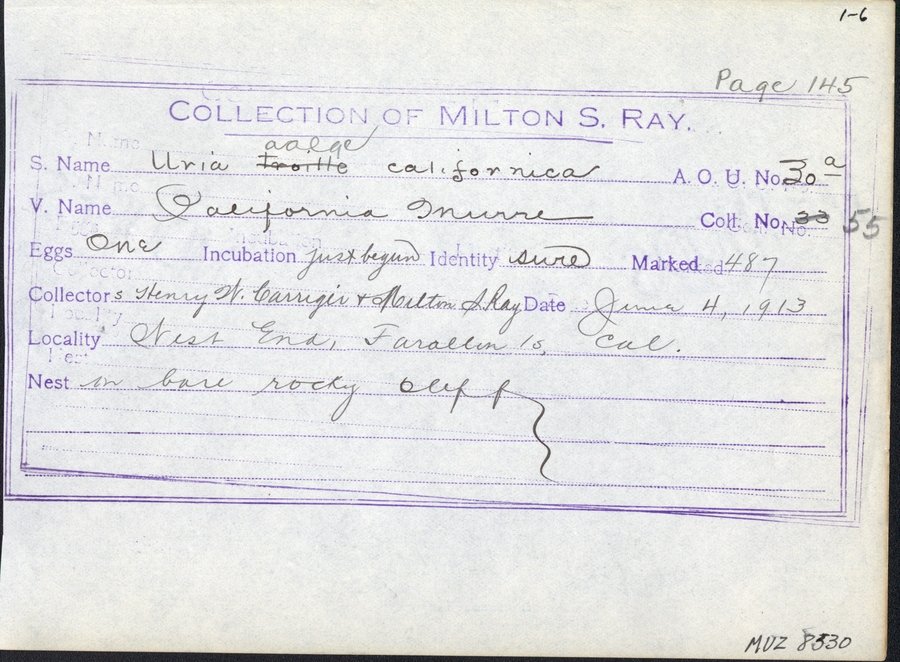 1-6
Page 145
COLLECTION OF MILTON S. RAY.
aalge
S. Name Uria troille californica A. O. U. No. 30a
V. Name California Murre Coll. No. 33 55
Eggs One Incubation just begun Identity sure Marked 487
Collectors Henry W. Carriger & Milton S Ray Date June 4, 1913
Locality West End, Farallon Is, Cal.
Nest on bare rocky cliff
MVZ 8330